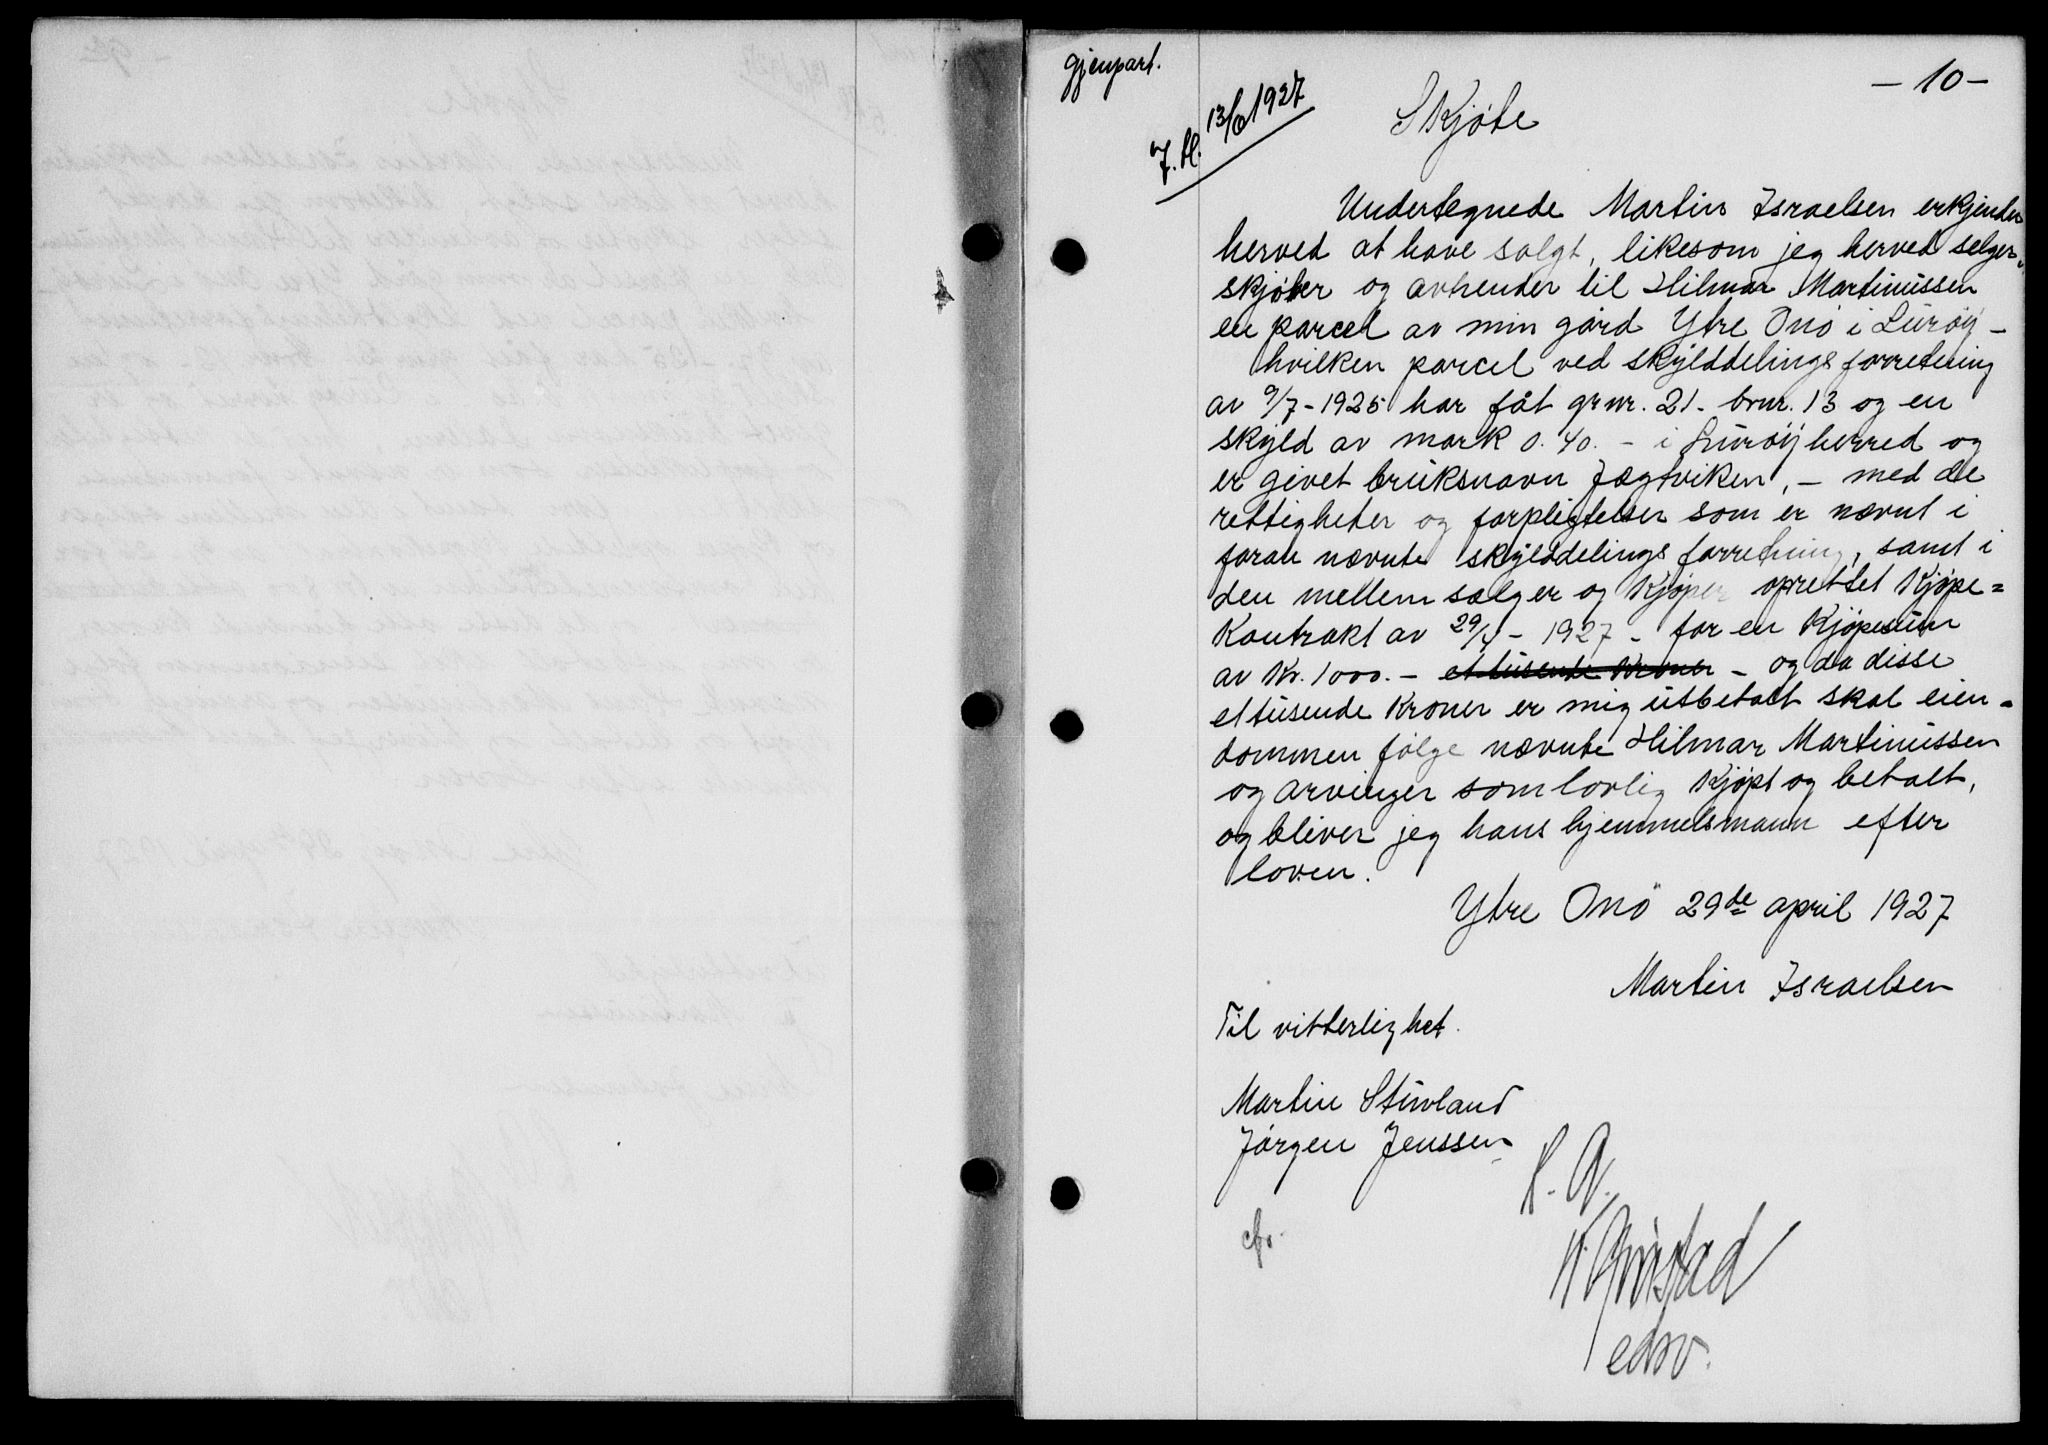 gjenpart.
- 10 -
7. H. 13/6 1927
Skjøte
Undertegnede Martin Israelsen erkjender
herved at have solgt, likesom jeg herved selger,
skjøter og avhender til Hilmar Martinussen
en parcel av min gård Ytre Onø i Lurøy -
hvilken parcel ved skylddelings forretning
av 9/7 - 1925 har fåt gr nr. 21. brnr. 13 og en
skyld av mark 0.40. - i Lurøy herred og
er givet bruksnavn Jægtviken, - med de
rettigheter og forpligtelser som er nævnt i
foran nævnte skylddelings forretning, samt i
den mellem sælger og kjøper oprettet kjøpe=
kontrakt av 29/4 - 1927 - for en kjøpesum
av Kr. 1000. - et tusende kroner - og da disse
et tusende kroner er mig utbetalt skal eien-
dommen følge nævnte Hilmar Martinussen
og arvinger som lovlig kjøpt og betalt,
og bliver jeg hans hjemmelsmann efter
loven.
Ytre Onø 29de april 1927
Martin Israelsen
Til vitterlighet.
Martin Stuvland
Jørgen Jenssen